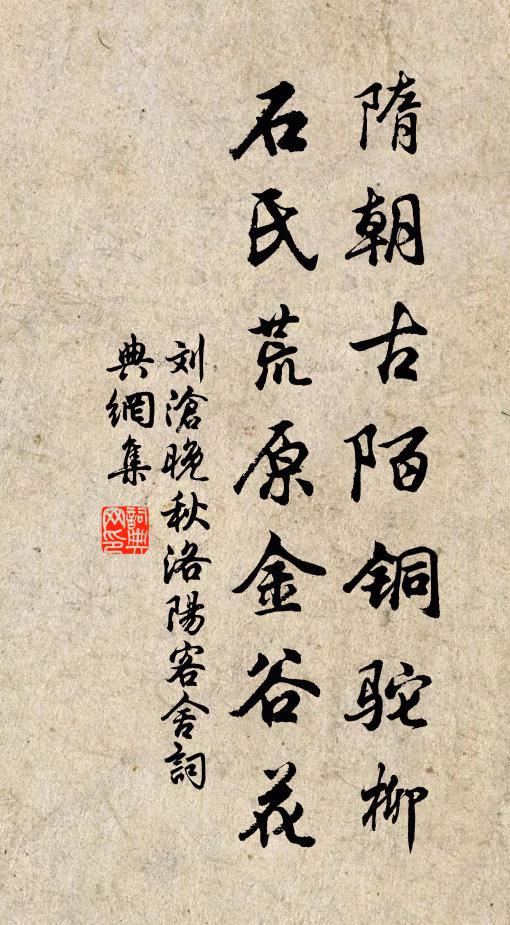 隋朝古陌铜驼柳
石氏荒原金谷花
刘滄晚秋洛陽客舍詞
典網集
詞典网印